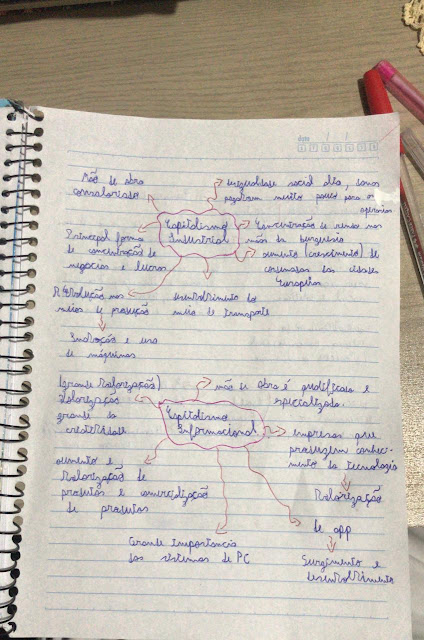 Mão de obra
assalariada
desigualdade social alta, donos
pagavam muito pouco para os
operários
Capitalismo
Industrial
Principal forma
de concentração de
negócios e lucros
Concentração de renda nas
mãos da burguesia
aumento (crescimento) de
consumo das cidades
Européias
Revolução nos
meios de produção
desenvolvimento do
meio de transporte
Evolução e uso
de máquinas
(grande valorização)
Valorização
grande da
criatividade
mão de obra é qualificada e
especializada.
Capitalismo
Informacional
empresas que
produzem conhec-
mento da tecnologia
Valorização
aumento e
valorização de
produtos e comercialização
de produtos
de app
Grande importância
dos sistemas de PC
Surgimento e
desenvolvimento